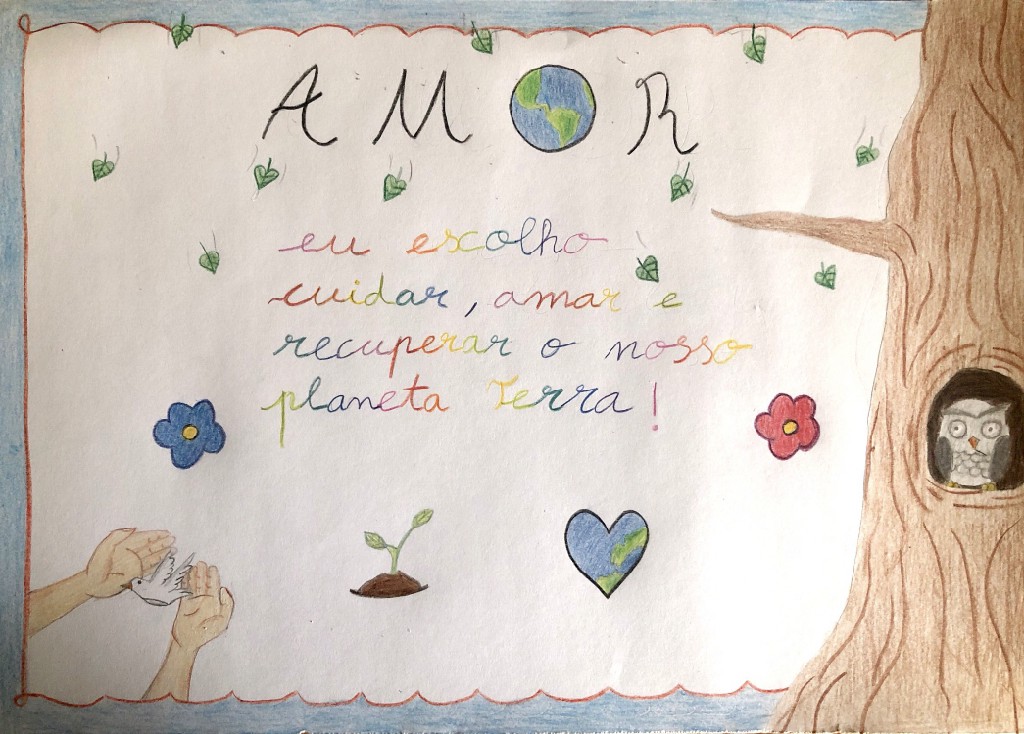 AMOR
eu escolho
cuidar, amar e
recuperar o nosso
planeta Terra!